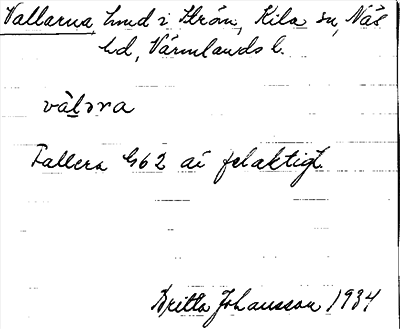 Vallarna, hmd i Ström, Kila sn, Näs
hd, Värmlands l.
vàlǝra
Fallera G62 är felaktigt.
Britta Johansson 1934